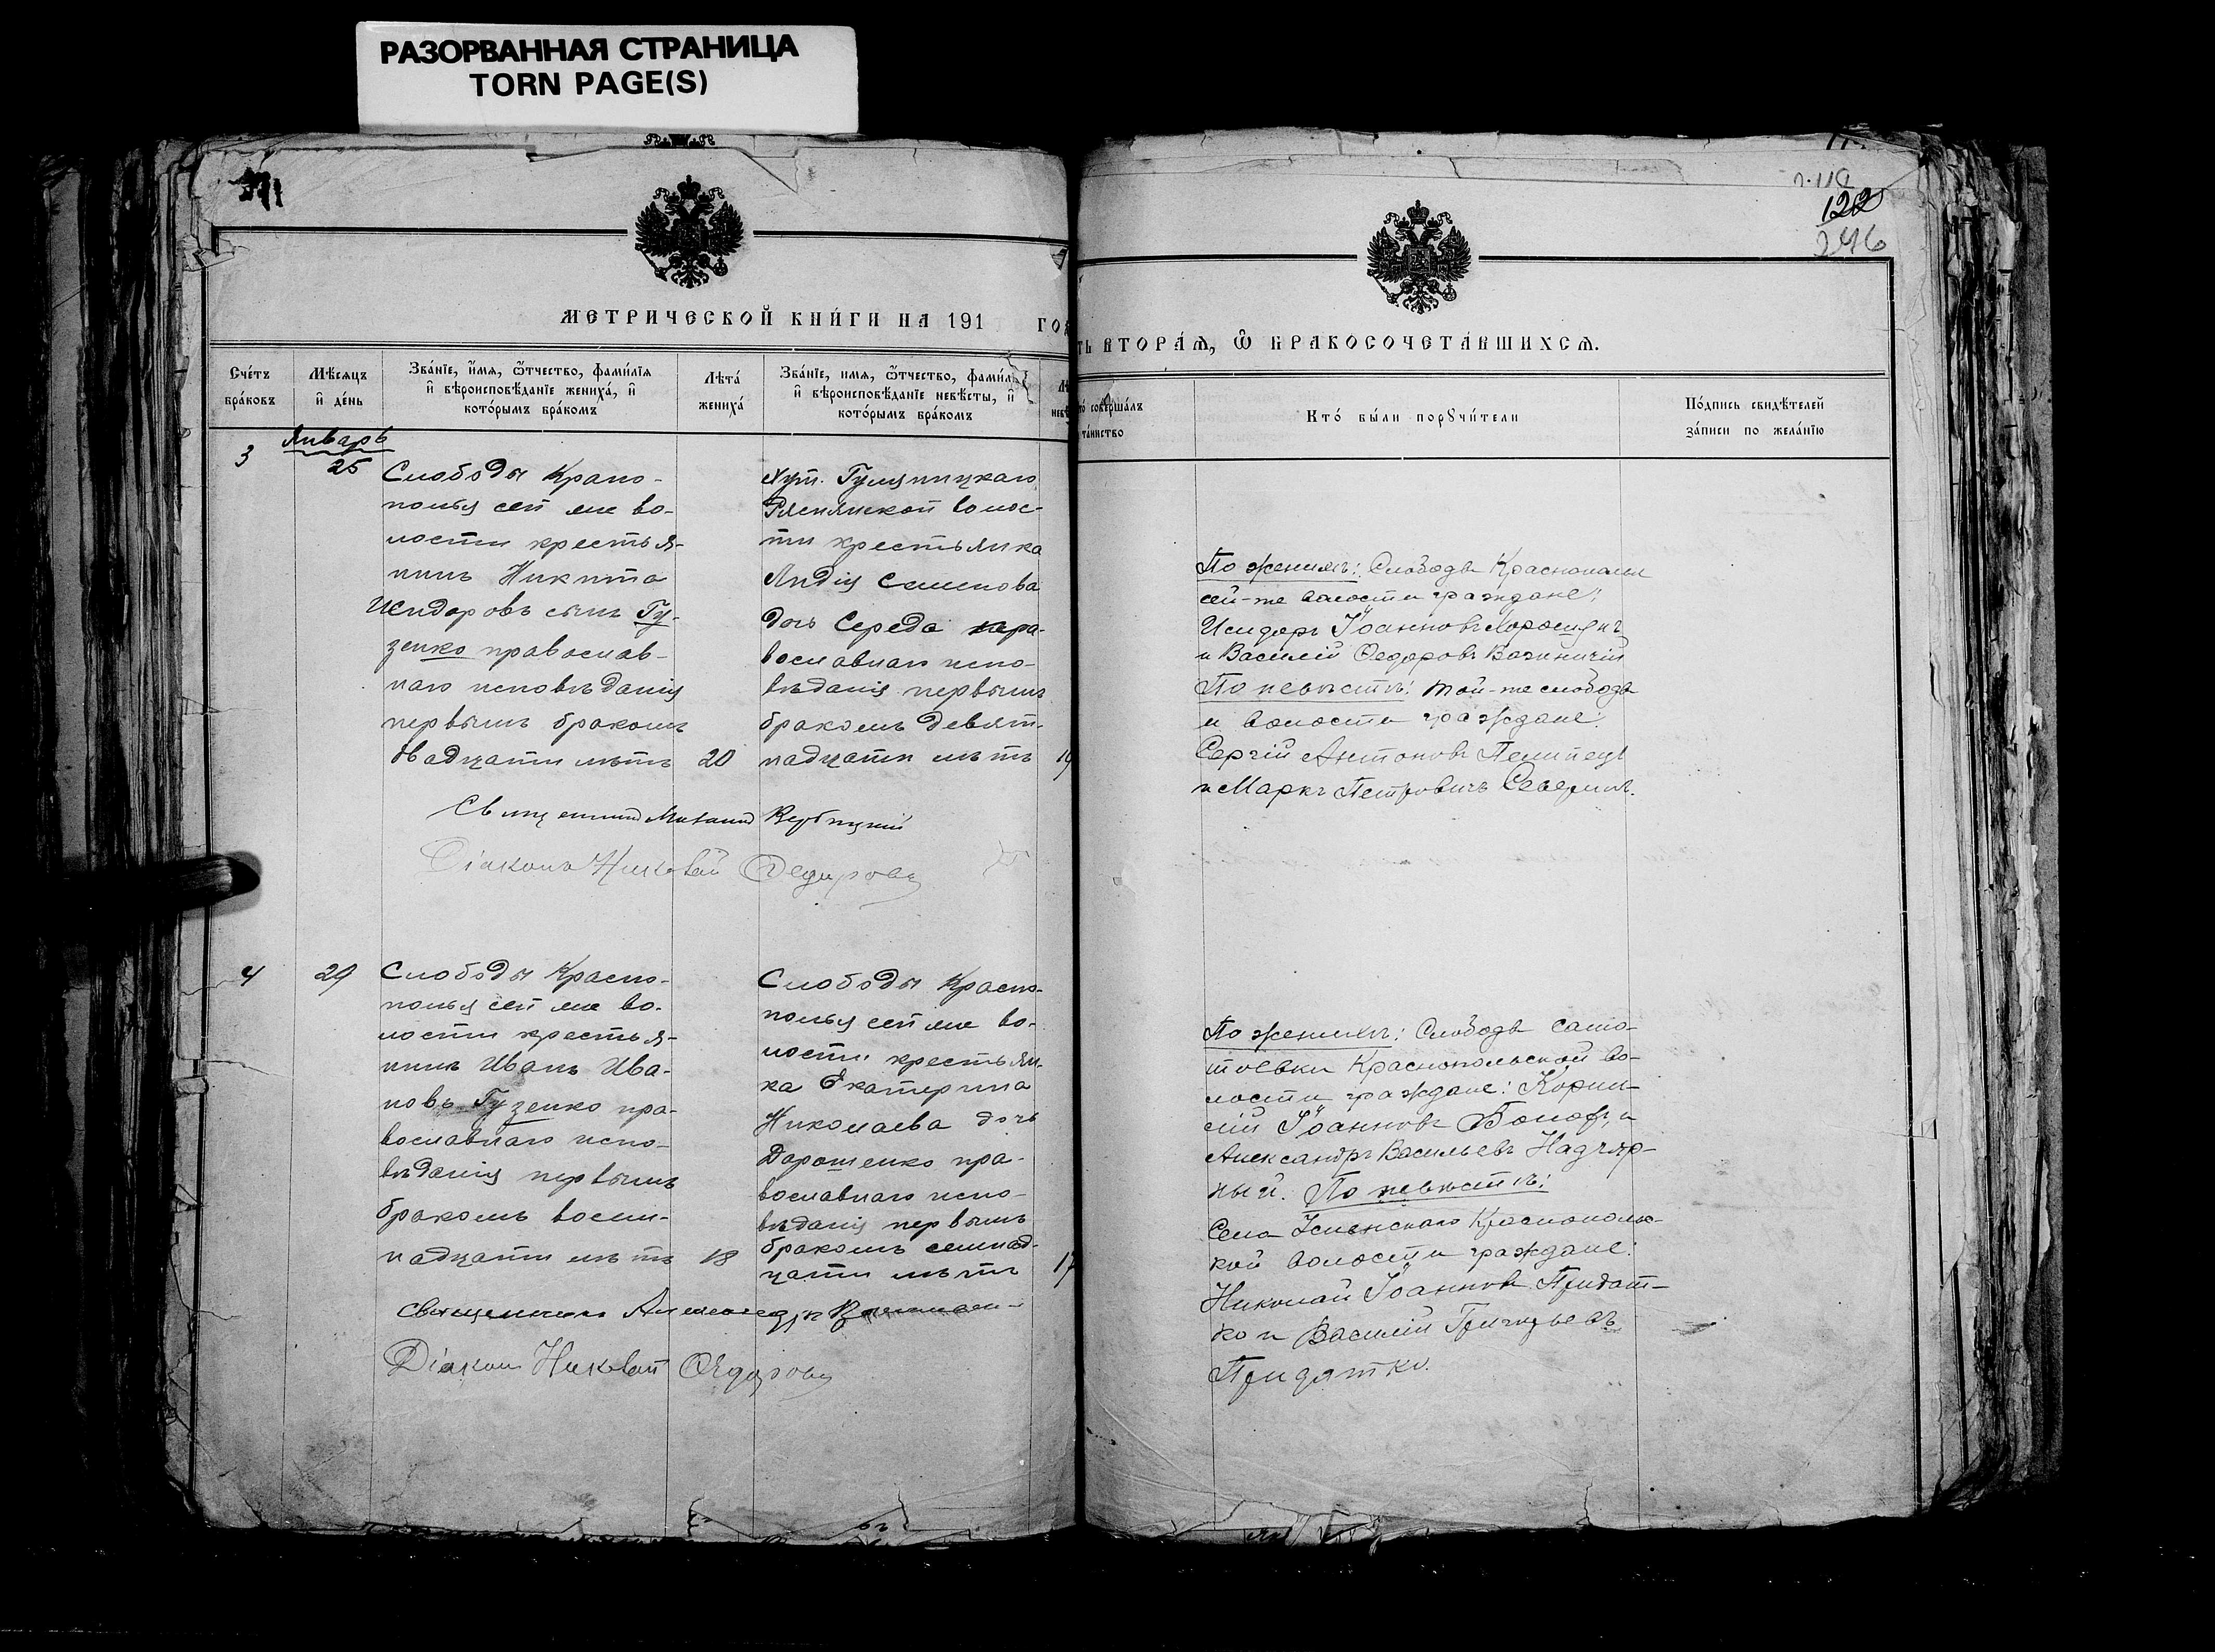 РАЗОРВАННАЯ СТРАНИЦА
TORN PAGE(S)
122
246
МЕТРИЧЕСКОЙ КНИ́ГИ НА 191 ГО
ТЬ ВТОРА́Ѧ, Ѽ БРАКОСОЧЕТА́ВШИХСѦ.
Сче́тъ бра́ковъ
Мѣ́сяцъ и҆ де́нь
Зва́нїе, и҆́мѧ, ѻ҆́тчество, фами́лїя и҆ вѣроисповѣ́данїе жениха́, и҆ кото́рымъ бра́комъ
Лѣта́ жениха́
Зва́нїе, имѧ, ѻ҆́тчество, фами́л и҆ вѣроисповѣ́данїе невѣ́сты, и҆ кото́рымъ бра́комъ
соверша́лъ та́инство
Кто́ бы́ли порꙋчи́тели
По́дпись свидѣ́телей за́писи по жела́нїю
Январь
3
25
Слободы Крапо-
полья сей же во-
лости крестья-
нинъ Никита
Исидоровъ сынъ Гу-
зенко православ-
наго исповѣданія
первымъ бракомъ
двадцати лѣтъ
20
Хут.
Ряснянской волос-
ти крестьянка
Лидія Семенова
дочь Середа пра-
вославнаго испо-
вѣданія первымъ
бракомъ девят-
надцати лѣтъ
19
Священникъ Михаилъ Вербицкій
Діаконъ Николай Федоровъ
По женихѣ: Слободы Краснополья
сей-же волости граждане:
Исидоръ Іоанновъ
и Василій Ѳедоровъ
По невѣстѣ: той-же слободы
и волости граждане:
Сергій Антоновъ Пелипецъ
и Маркъ Петровичъ Северинъ.
4
29
Слободы Красно-
полья сей же во-
лости крестья-
нинъ Иванъ Ива-
новъ Гузенко пра-
вославнаго испо-
вѣданія первымъ
бракомъ восем-
надцати лѣтъ
18
Слободы Красно-
полья сей же во-
лости крестьян-
ка Екатерина
Николаева дочь
Дорошенко пра-
вославнаго испо-
вѣданія первымъ
бракомъ семнад-
цати лѣтъ
17
Священникъ Александръ
Діаконъ Николай Ѳедоровъ
По женихѣ: Слободы Само-
тоевки Краснопольской во-
лости граждане: Корни-
лій Іоанновъ и
Александръ Васильевъ
По невѣстѣ:
Села Успенскаго Краснопольс-
кой волости граждане:
Николай Іоанновъ Придат-
ко и Василій Григорьевъ
Придятко.